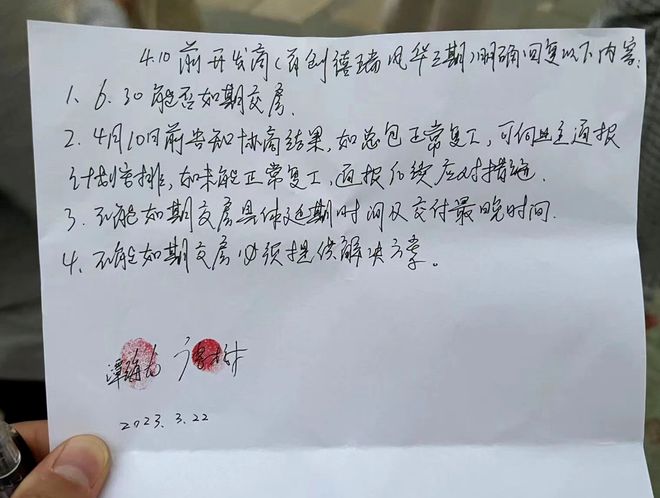 4.10前开发商(首创禧瑞风华三期)明确回复以下内容:
1、6.30能否如期交房.
2、4月10日前告知协商结果,如总包正常复工,可向业主通报
计划安排,如未能正常复工,通报后续应对措施.
3、不能如期交房具体延期时间及交付最晚时间.
4、不能如期交房必须提供解决方案。
谭海
2023.3.22